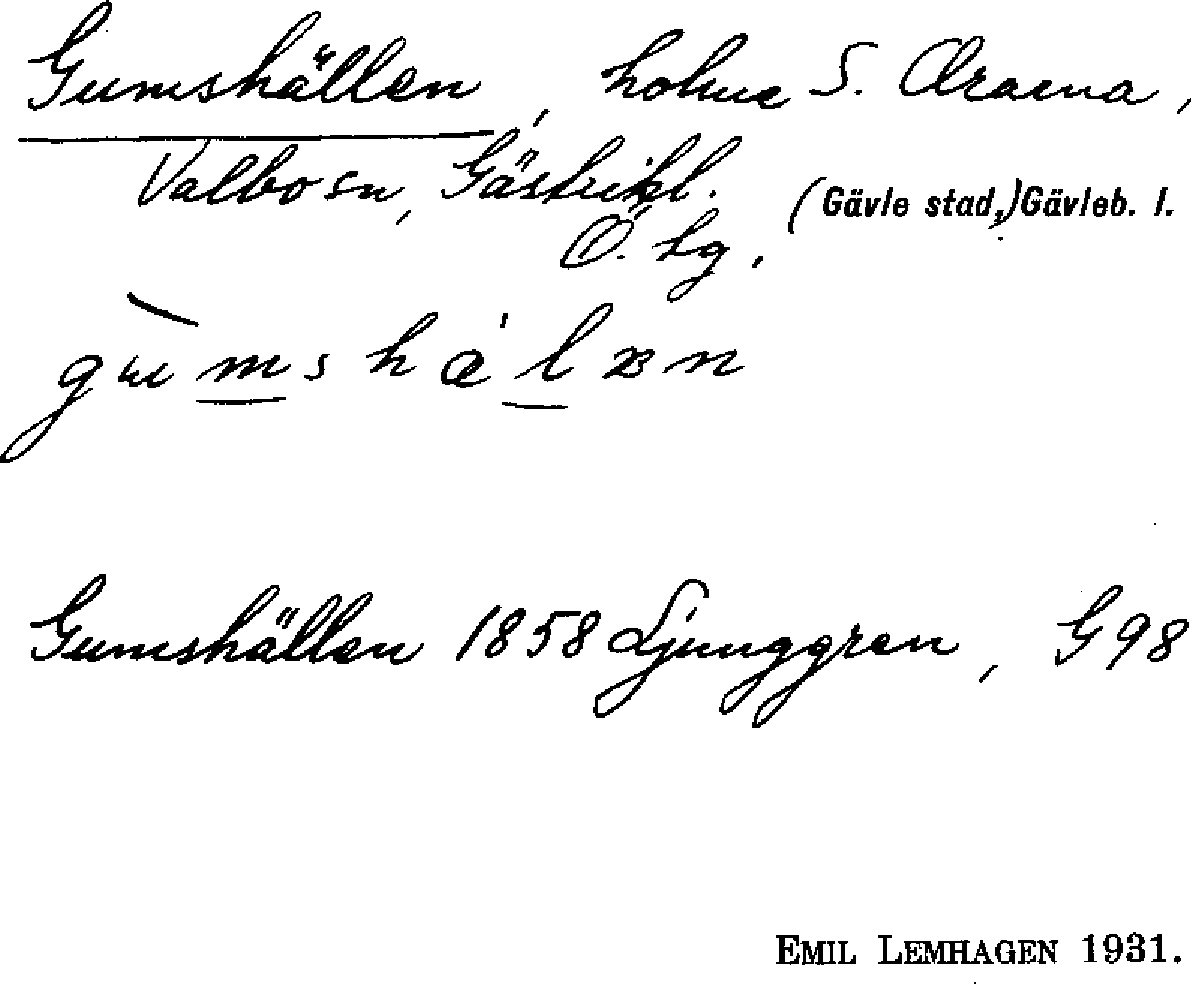 Gumshällen, holme S. Oraena,
Valbo sn, Gästrikl. (Gävle stad,) Gävleb. l.
Ö. hg.
gumshälən
Gumshällen 1858 Ljunggren, G98
EMIL LEMHAGEN 1931.